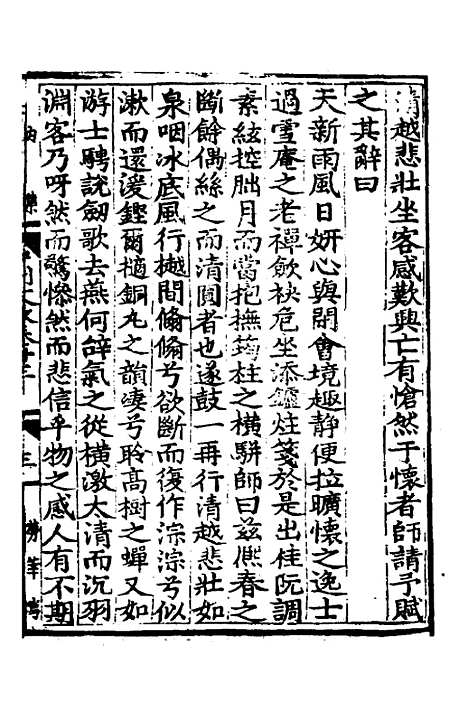 清越悲壯坐客感歎興亡有愴然于懷者師請予賦
之其辭曰
天新雨風日妍心與閒會境趣静便拉曠懷之逸士
過雪庵之老禪飲袂危坐添鑪炷箋於是出佳阮調
素絃控朏月而當抱撫筠柱之横駢師曰兹㒵春之
斷餘偶絲之而清圓者也遂鼓一再行清越悲壯如
泉咽冰底風行樾間翛翛兮欲斷而復作淙淙兮似
漱而還湲鏗爾擿銅丸之韻凄兮聆髙樹之蟬又如
游士騁說劔歌去燕何辭氣之從横激太清而沉羽
淵客乃呀然而驚慘然而悲信乎物之感人有不期